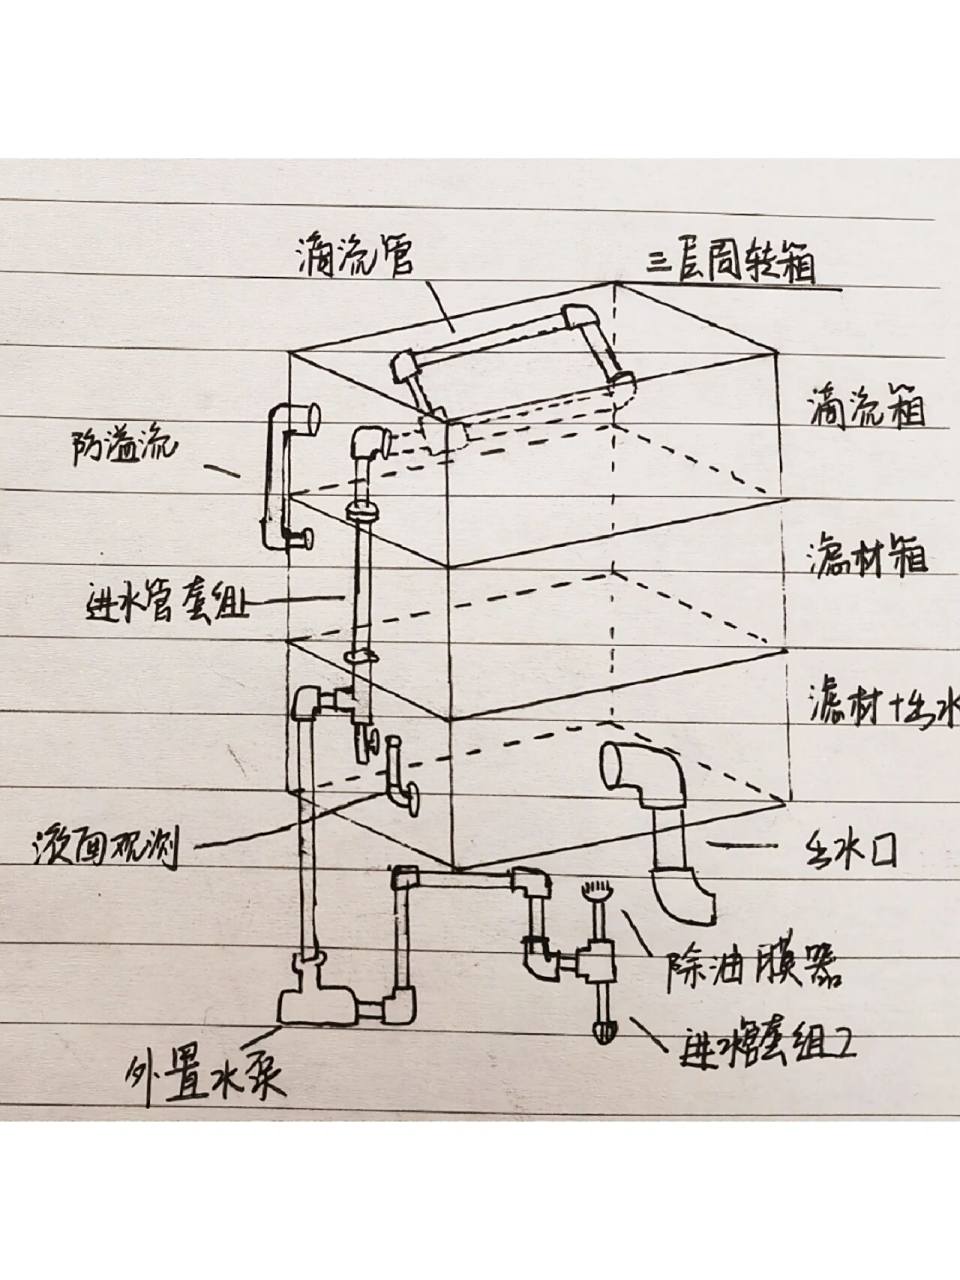 滴流管
三层周转箱
滴流箱
防溢流
滤材箱
进水管套组
滤材+出水
液面观测
出水口
除油膜器
进水管套组2
外置水泵